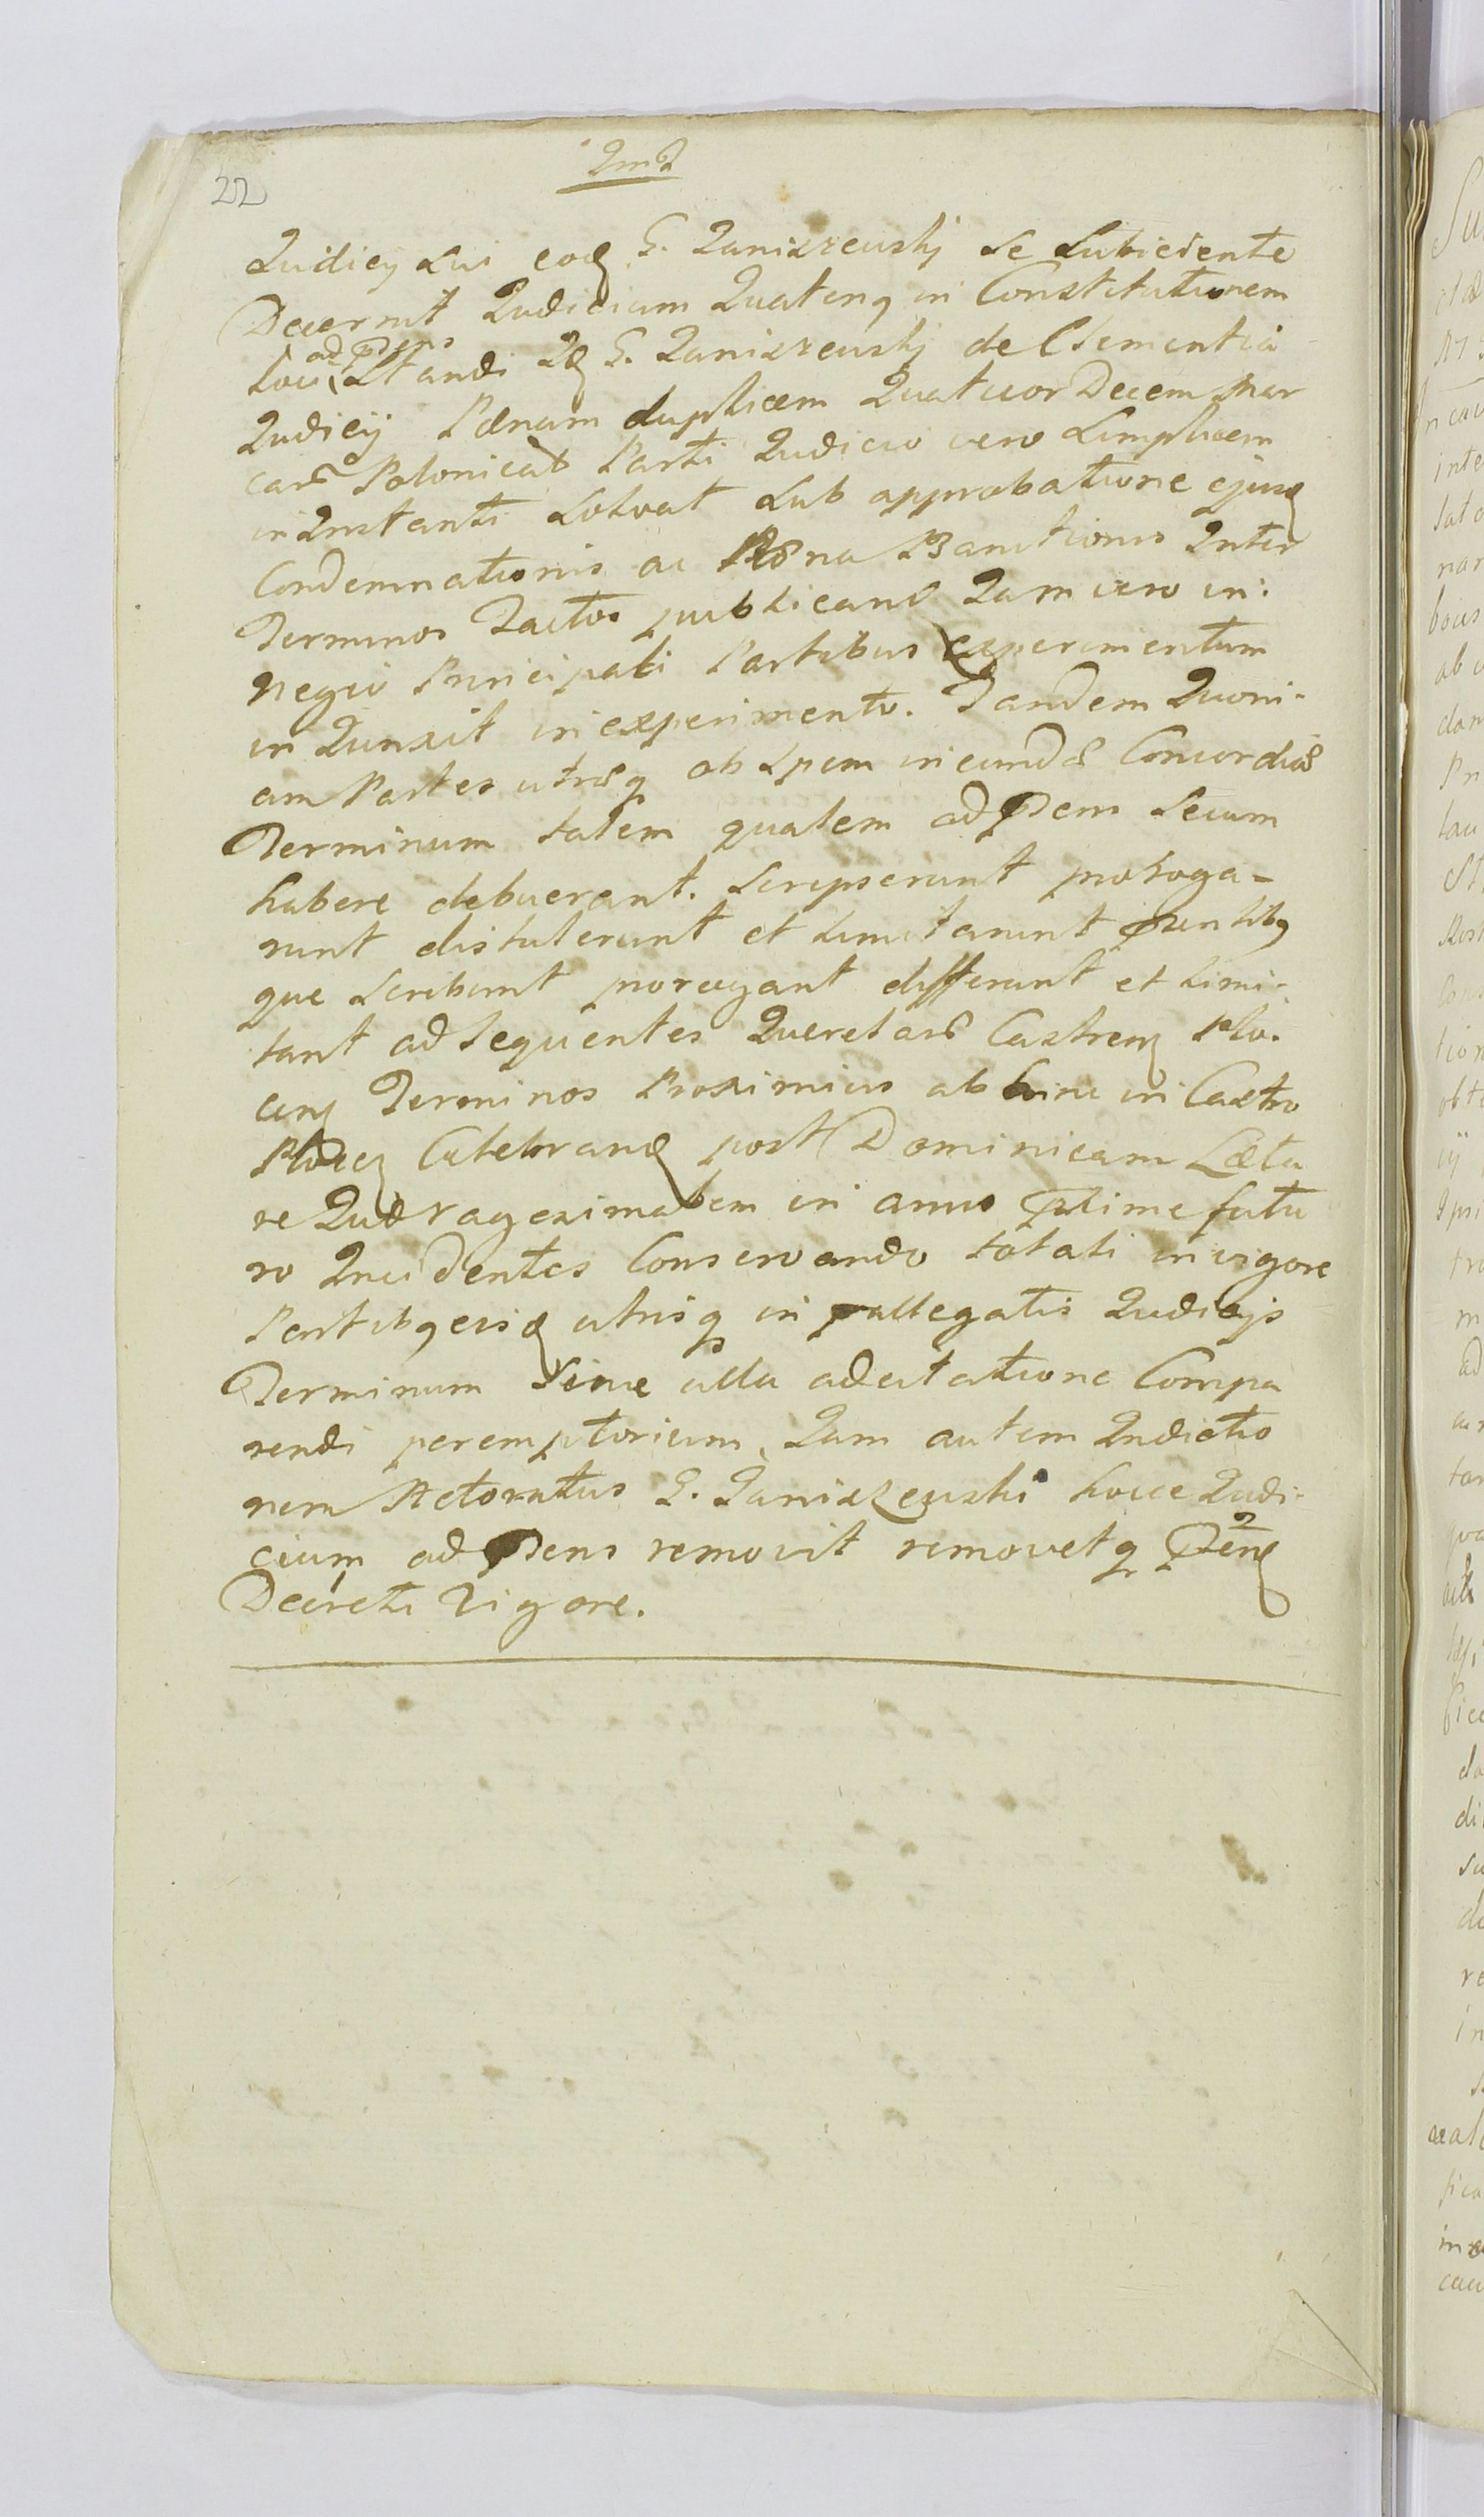 22
Judicy sui eod G. Janiszewskj se subiciente
Decernit Judicium Quatenq in Constitutionem
ad pdens
loci standi Id G. Janiszewskj de Clementia
Judicij Pænam duplicem Quatuor Decem Mar
carum Polonical Parti Judicio vero Simplicem
in Instanti Solvat Sub approbatione ejusd
Condemnationis ac Pæna Banitionis Inter
Terminos Tactos publicand Jam vero in:
negio Principali Partibus experimentum
in Junxit in experimento. Tandem Quoni-
am Partes utræq ob Spem ineundæ Concordiæ
Terminum talem qualem ad pdens Secum
habere debuerant. Scripserunt proroga-
runt distulerunt et limitarunt pzntibq
que Scribunt prorogant differunt et limi-
tant ad sequentes Querelarum Castren Plo.
cen Terminos Proximius ab hinc in Castro
Plocen Celebrand post Dominicam Læta
re Quadragesimalem in anno pxime futu
ro Incidentes Conservando totali in vigore
Partibq eisd utrisq in præallegatis Judicijs
Terminum Sine ulla adcitatione Compa
rendi peremptorium, Jam autem Indictio
nem Actoratus G. Janiszewski hocce Judi-
cium ad pdens removit removetq pден
Decreti Vigore.